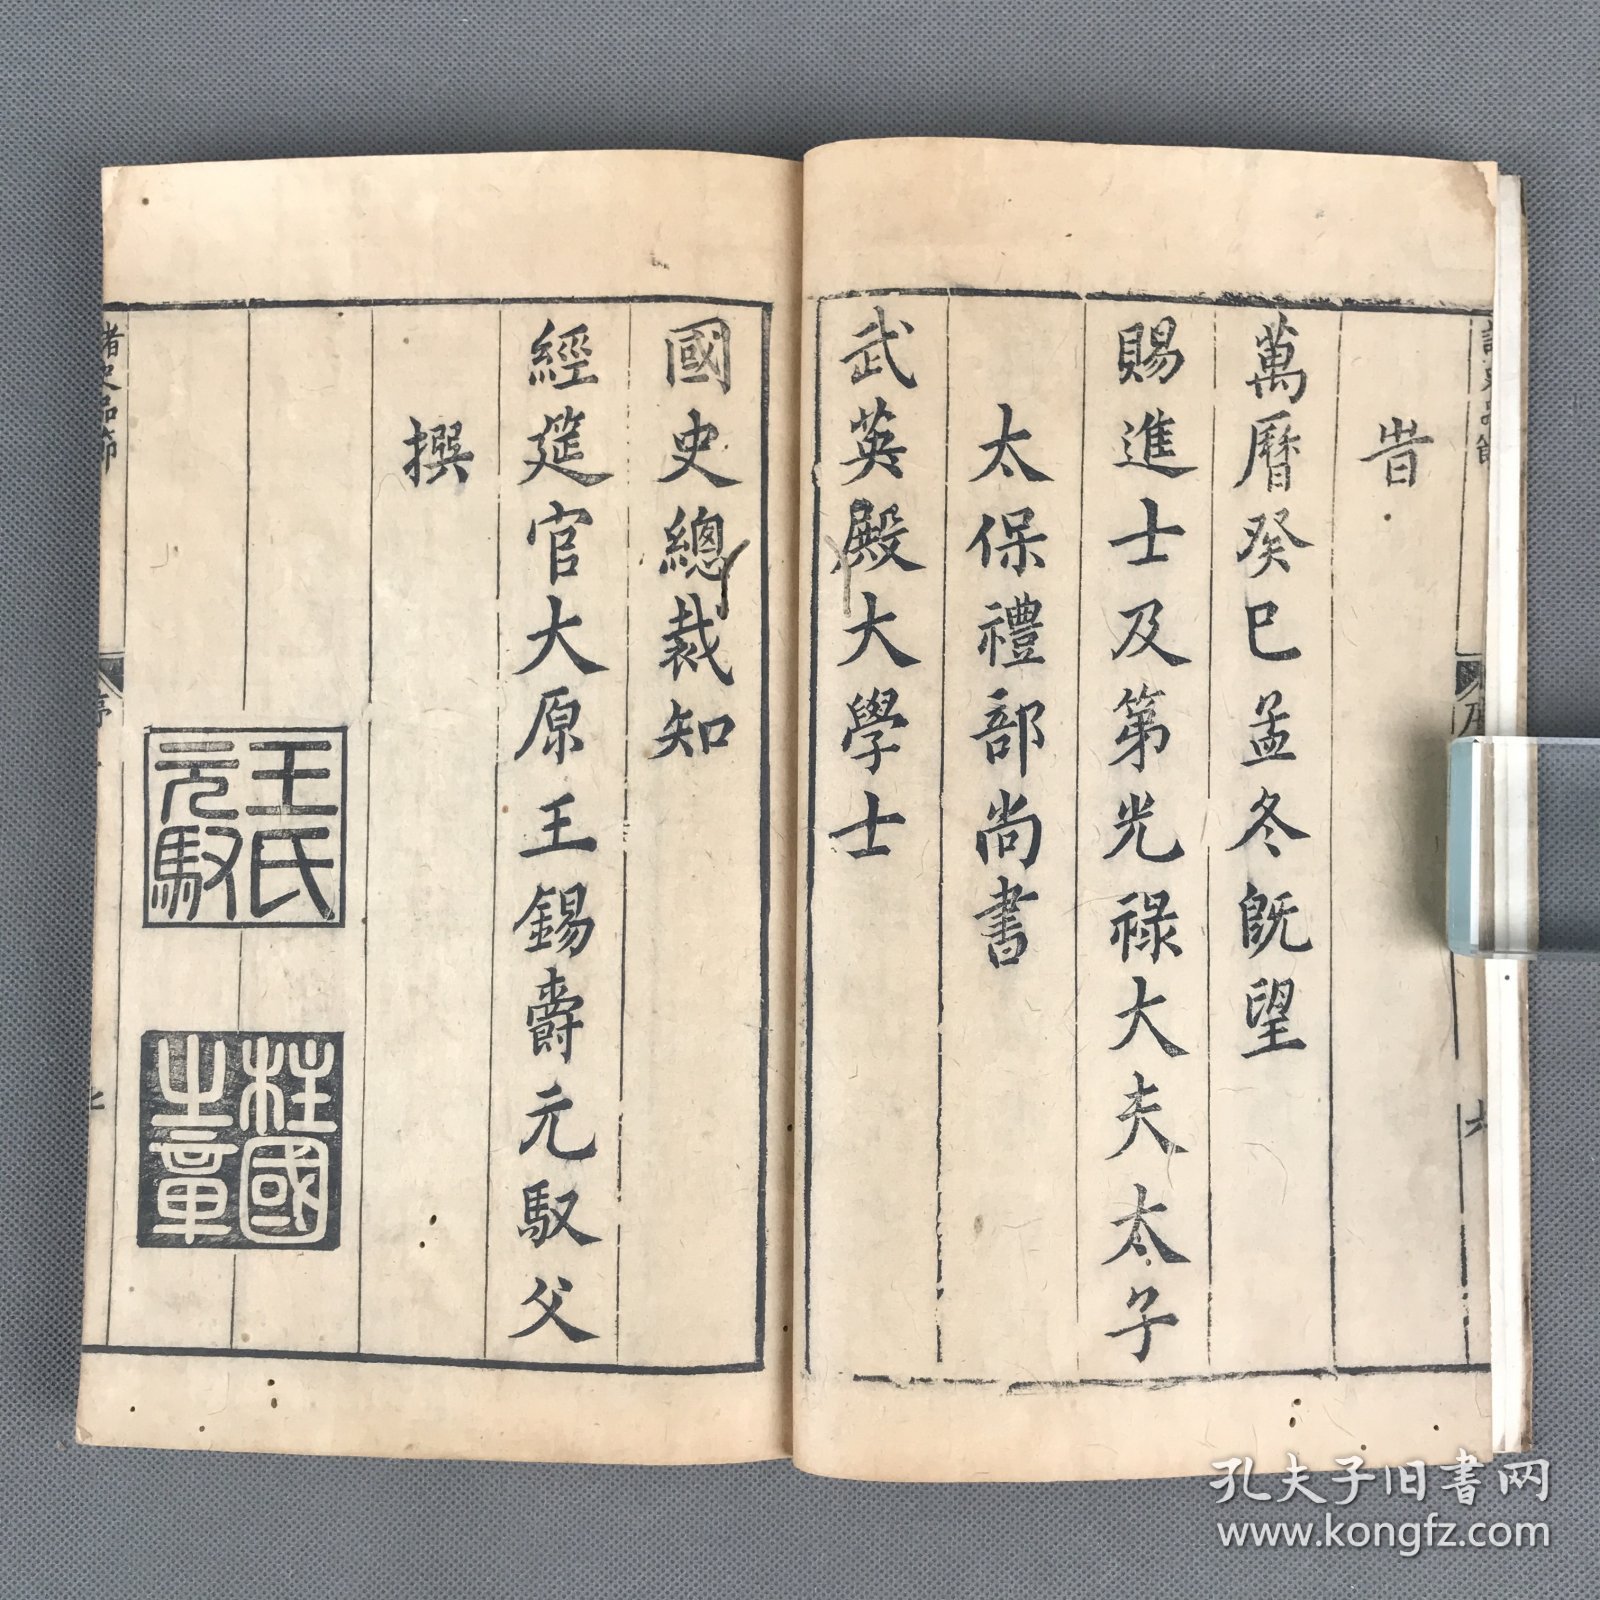 旹
萬曆癸巳孟冬既望
賜進士及第光祿大夫太子
太保禮部尚書
武英殿大學士
國史總裁知
經筵官大原王錫爵元馭父
撰
王氏元馭
柱國之章
諸史品節
序
六
孔夫子旧书网
www.kongfz.com